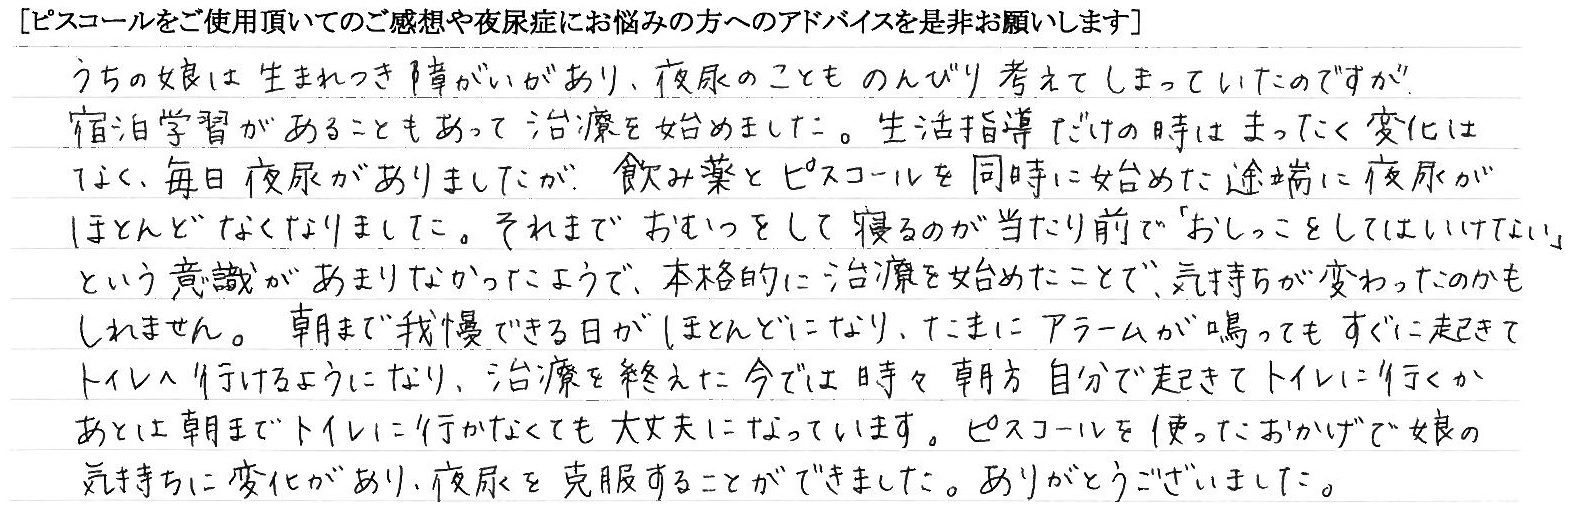 [ピスコールをご使用頂いてのご感想や夜尿症にお悩みの方へのアドバイスを是非お願いします]
うちの娘は生まれつき障がいがあり、夜尿のことものんびり考えてしまっていたのですが、
宿泊学習があることもあって治療を始めました。生活指導だけの時はまったく変化は
なく、毎日夜尿がありましたが、飲み薬とピスコールを同時に始めた途端に夜尿が
ほとんどなくなりました。それまでおむつをして寝るのが当たり前で「おしっこをしてはいけない」
という意識があまりなかったようで、本格的に治療を始めたことで、気持ちが変わったのかも
しれません。朝まで我慢できる日がほとんどになり、たまにアラームが鳴ってもすぐに起きて
トイレへ行けるようになり、治療を終えた今では時々朝方自分で起きてトイレに行くか
あとは朝までトイレに行かなくても大丈夫になっています。ピスコールを使ったおかげで娘の
気持ちに変化があり、夜尿を克服することができました。ありがとうございました。